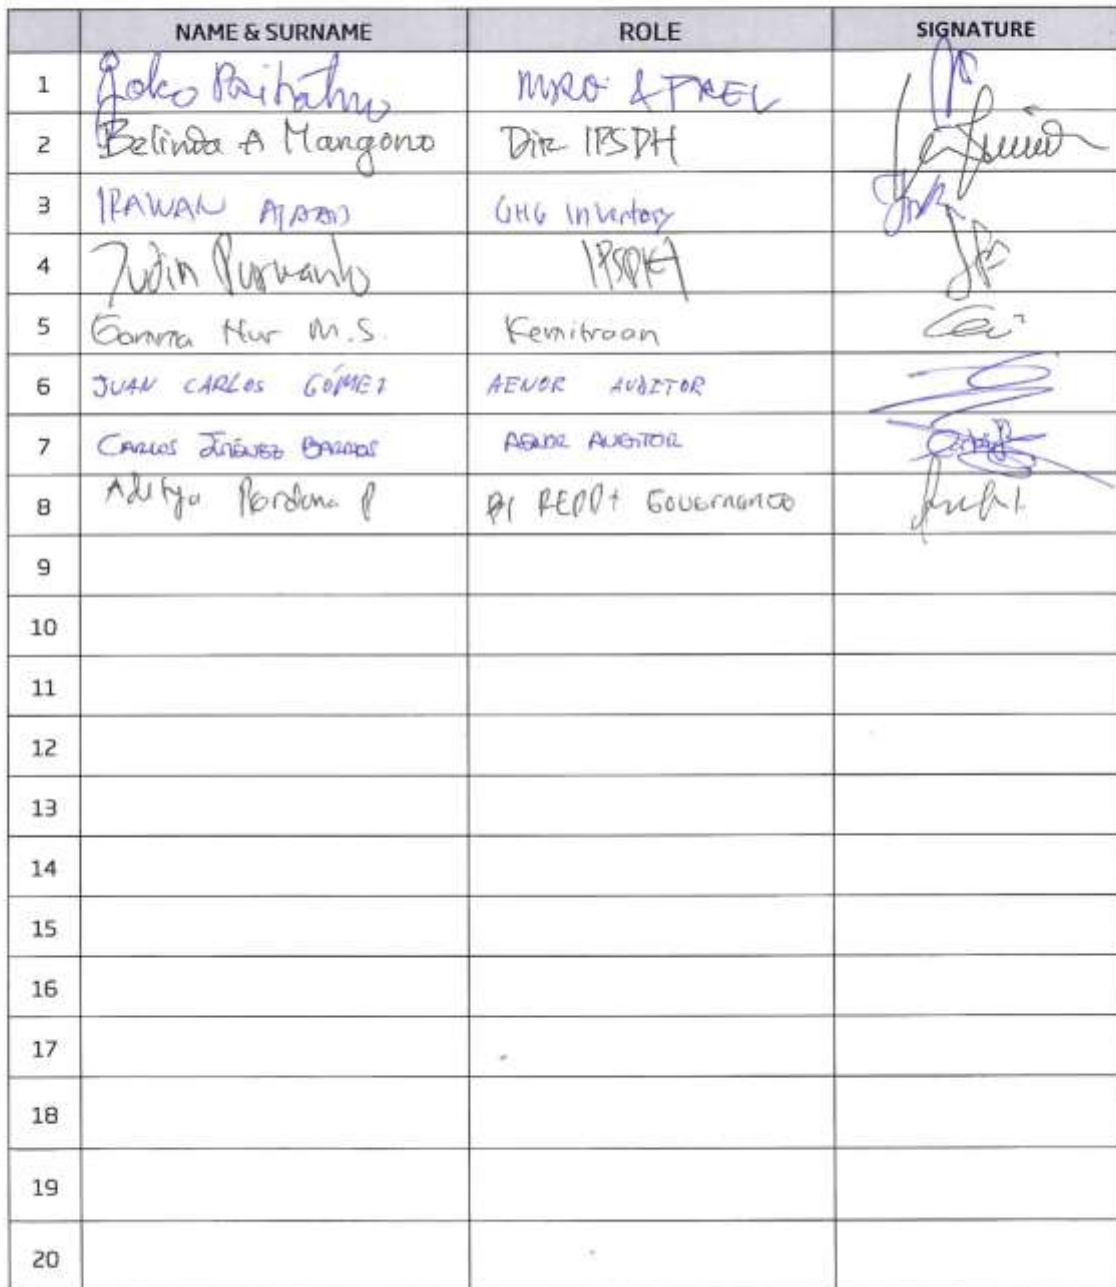 NAME & SURNAME ROLE SIGNATURE
1 Joko
2 Belinda A Margono Dir IPSDH
3 IRAWAN GHG Inventory
4 Yudin Purwanto IPSDH
5 Gamma Nur M.S. Kemitraan
6 JUAN CARLOS GÓMEZ AENOR AUDITOR
7 CARLOS JIMÉNEZ BARRIOS AENOR AUDITOR
8 Aditya Perdana P REDD+ Governance
9
10
11
12
13
14
15
16
17
18
19
20